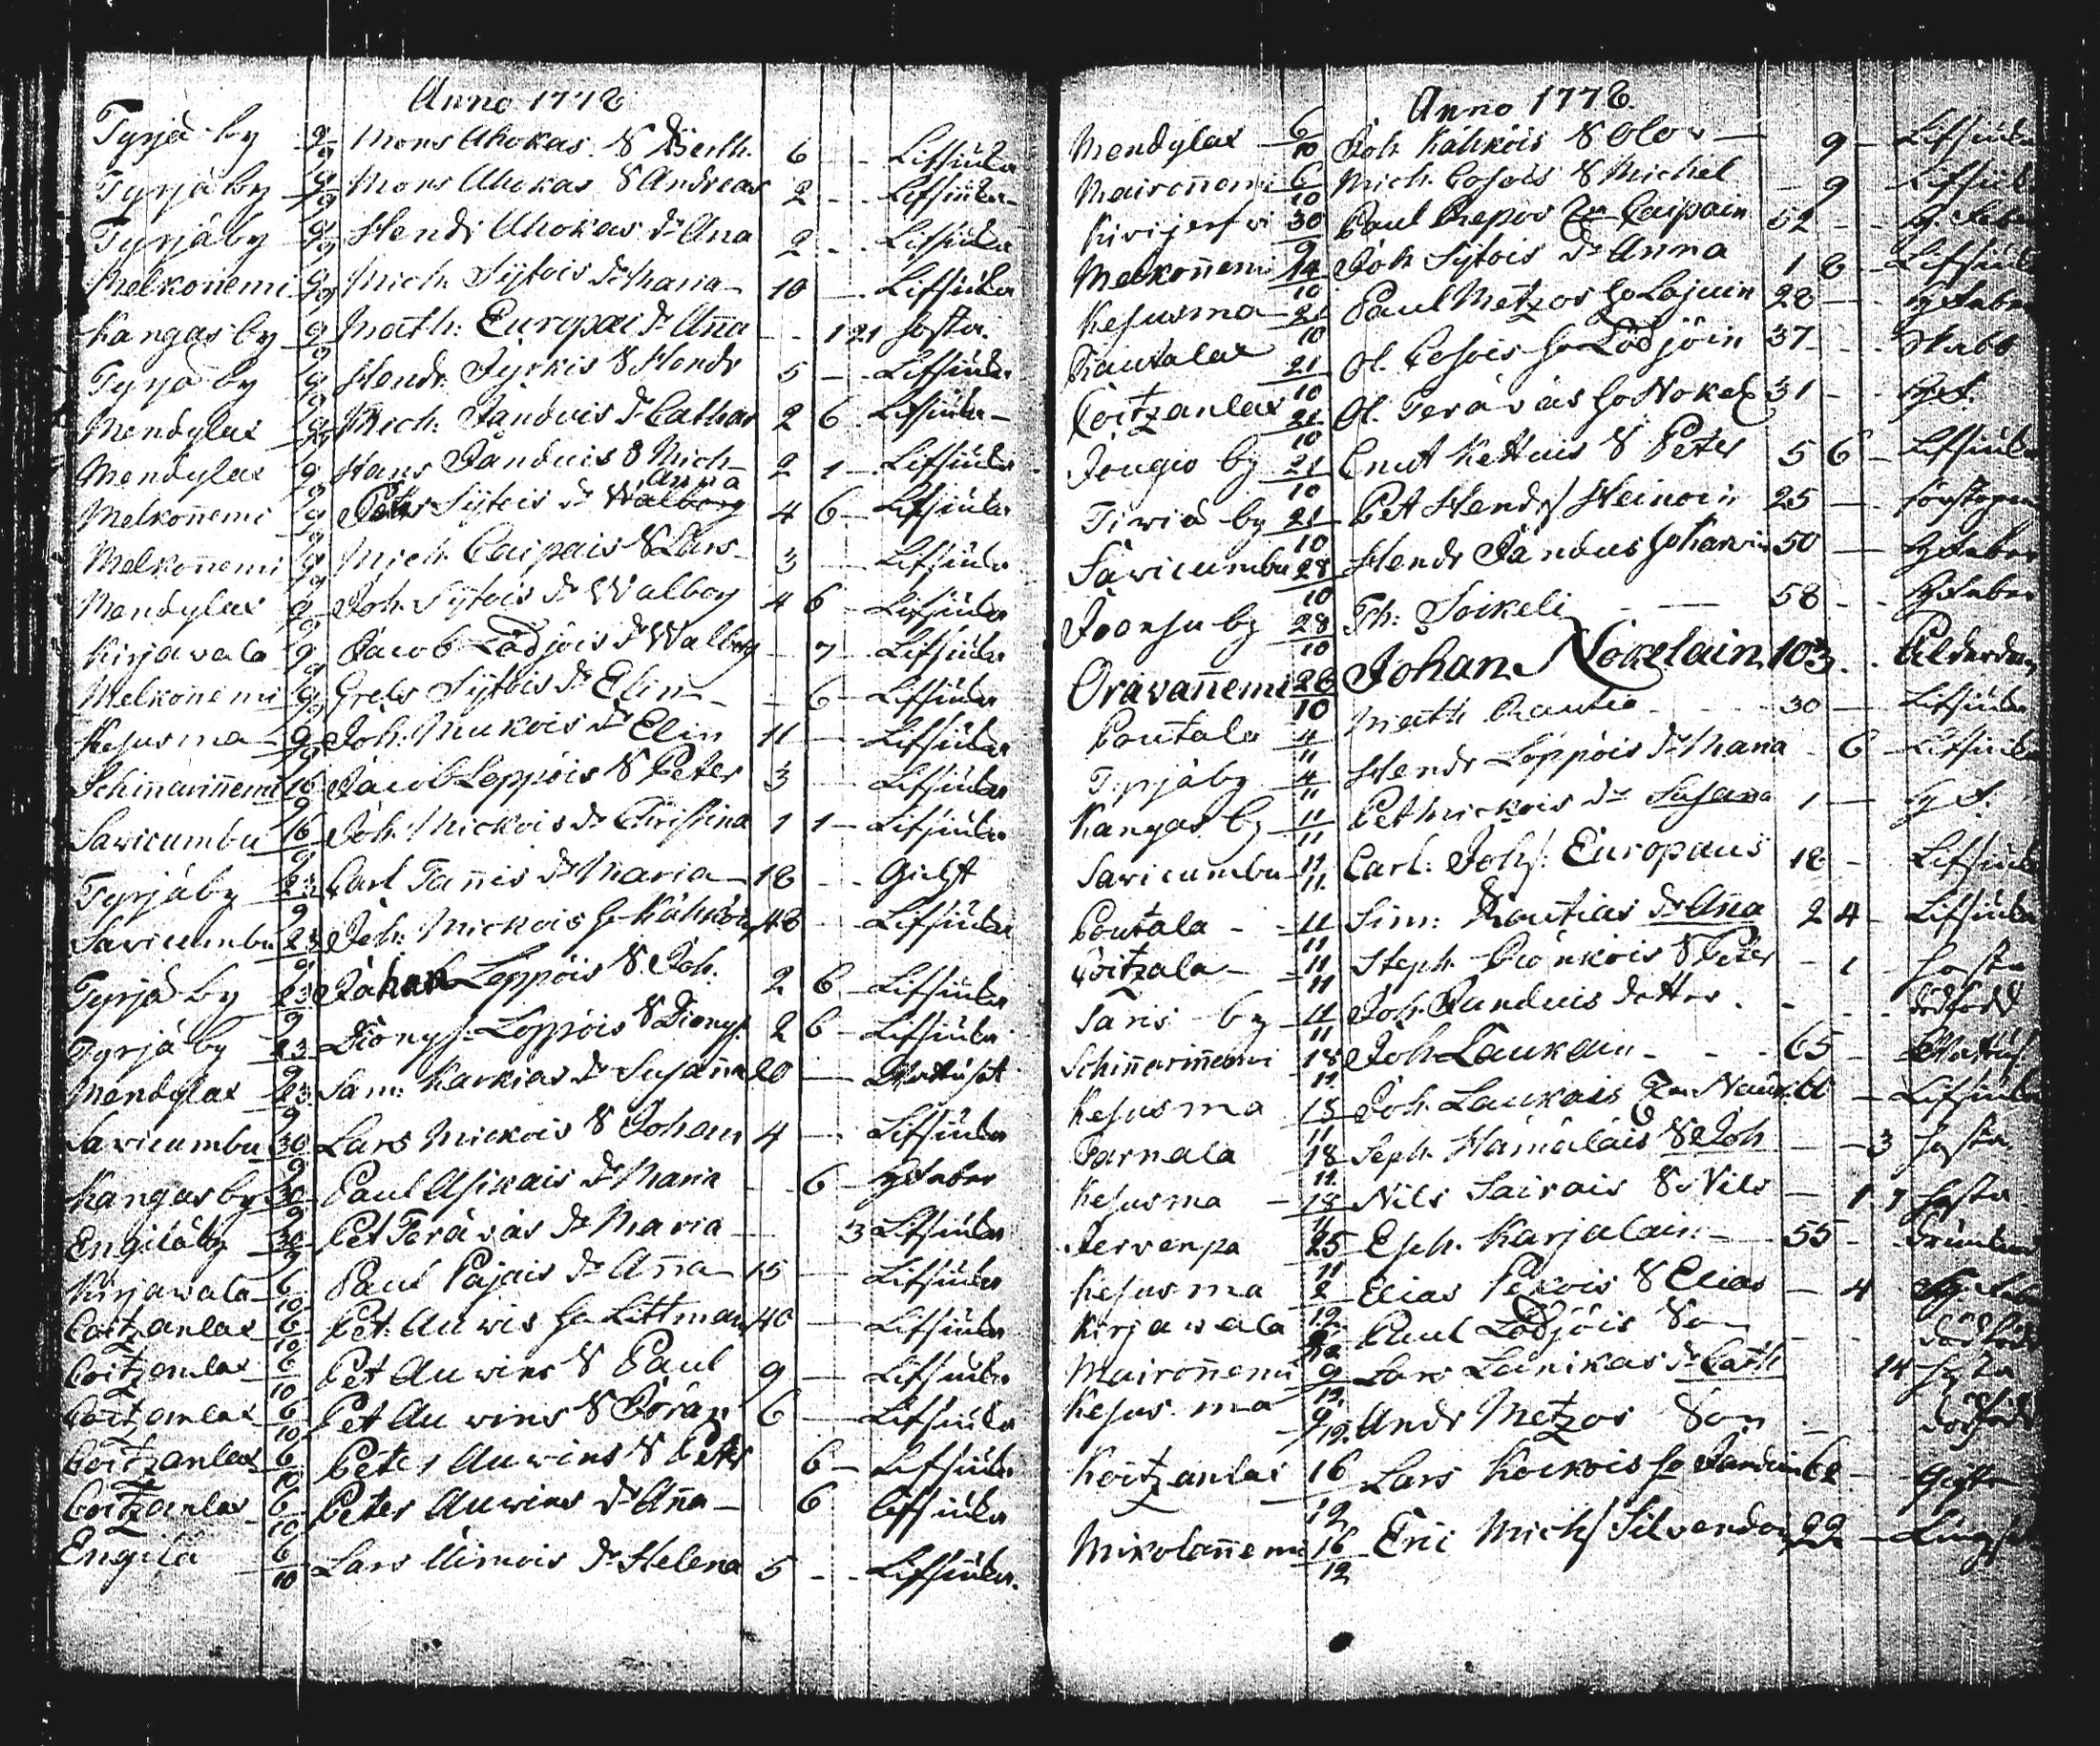 Anno 1778
Tyrjä by 9/9 Mons Ahokas S Berth. 6 - - Lifsiuka
Tyrjäby 9/9 Mons Ahokas S Andreas 2 - - Lifsiuka
Tyrjäby 9/9 Hendr Ahokas Dr Ana 2 - - Lifsiuka
Melkoñemi 9/9 Mich. Sÿtois Dr Maria 10 - Lifsiuka
Kangas by 9/9 Math: Europæi Dr Aña - 1 21 hosta.
Tyrjä by 9/9 Hendr. Jyrkis S Hendr 5 - Lifsiuka
Mendylax 9/9 Mich. Janduis Dr Cathar 2 6 Lifsiuka
Mendylax 9/9 Hans Janduis S Mich 2 1 - Lifsiuka
Melkoñemi 9/9 Petter Sÿtois Dr Walborg Anna 4 6 - Lifsiuka
Melkoñemi 9/9 Mich. Caipais S Lars 3 - Lifsiuka
Mendylax 9/9 Joh. Sÿtois Dr Walbor 4 6 - Lifsiuka
Kirjavala 9/9 Jacob Lödjöis Dr Walborg - 7 - Lifsiuka
Melkoñemi 9/9 Grels Sÿtois Dr Elin - 6 - Lifsiuka
Kesusma 9/9 Joh. Mukois Dr Elin 11 - Lifsiuka
Schinnariñemi 16/9 Jacob Loppöis S Peter 3 - Lifsiuka
Saricumbu 16/9 Joh. Mickois Dr Christina 1 1 - Lifsiuka
Tyrjäby 23/9 Carl Tannis Dr Maria 18 - - Gickt
Saricumbu 23/9 Joh. Mickois h Kähkön 48 - Lifsiuka
Tyrjä by 23/9 Johan Loppöis S Joh. 2 6 - Lifsiuka
Tyrjä by 23/9 Dionys. Loppöis S Dionys. 2 6 - Lifsiuka
Mendylax 23/9 Sam: Karkias Dr Susanna 20 -
Saricumbu 30/9 Lars Mickois S Johan 4 - Lifsiuka
Kangas by 30/9 Paul Asikais Dr Maria - 6 - H Feber
Engilä by 30/9 Pet Teräväs Dr Maria - 3 Lifsiuka
Kirjavala 6/10 Paul Pajais Dr Aña 15 - Lifsiuka
Coitzanlax 6/10 Pet. Auvis h Littman 40 - Lifsiuka
Coitzanlax 6/10 Pet Auvins S Paul 9 - Lifsiuka
Coitzanlax 6/10 Pet Auvins S Jöran 6 - Lifsiuka
Coitzanlax 6/10 Peter Auvins S Peter 6 - Lifsiuka
Coitzanlax 6/10 Peter Auvins Dr Aña - 6 Lifsiuka
Engilä 6/10 Lars Uimois Dr Helena 5 - - Lifsiuka.
Anno 1778
Mendylax 6/10 Joh. Kähköis S Olov - 9 - Lifsiuka
Maironnemi 6/10 Mich. Cosois S Michel - 9 - Lifsiuk
Kirijerfvi 30/9 Paul Repos Caipain 52 - - H. Feber
Melkoñemi 14/10 Joh Sÿtois Dr Anna 1 8 - Lifsiuk
Kesusma 21/10 Paul Metzos h Lajuin 28 - H Feber
Rautalax 21/10 Ol. Cosois h Lödjöin 37 - - Håll
Coitzanlax 21/10 Ol. Teräväs h Nokel 31 - - H F.
Jougio by 21/10 Cnut Kettuis S Peter 5 6 - Lifsiuka
Tiwia by 21/10 Pet Hendrs Heinoin 25 -
Saricumbu 28/10 Hendr Jandus 50 - H Feber
Joensu by 28/10 Th: Soikeli - - 58 - - H Feber
Oravañemi 28/10 Johan Nokelain 103 - - Ålderdom
Poutala 4/11 Math Rautia - - 30 - Lifsiuka
Tyrjäby 4/11 Hendr Loppöis Dr Maria - 6 - Lifsiuka
Kangas by 11/11 Pet Mickois Dr Susana 1 - H F.
Saricumbu 11/11 Carl: Johs: Europæus 18 - Lifsiuk
Poutala - 11/11 Sim: Rautias Dr Aña 2 4 - Lifsiuka
Coitzala - 11/11 Steph. S Peter - 1 - hosta
Saris by 11/11 Joh. Junduis dotter. - - - dödfödd
Schinnariñemi 18/11 Joh Laukain - - - 65 -
Kesusma 18/11 Joh. Laukais - Lifsiuka
Parnala 18/11 Steph. Hämäläis S Joh - - 3 hosta
Kesusma - 18/11 Nils Sairais S Nils - 1 7 hosta
Jervenpä 25/11 Esch. Karjalain - 55 - - drunknad
Kesusma 2/12 Elias Pekois S Elias - 4 H Feb
Kirjavala Paul Lödjöis Son - - - dödfödd
Maironnemi 9/12 Lars Lanikas Dr Cath 14 hosta
Kesusma 9/12 Andr Metzos Son - - dödfödd
Koitzanlax 16/12 Lars Kockois h Janduin 62 - Gickt
Mikolañemi 16/12 Eric Michs Silvendoin 22 - Lungs